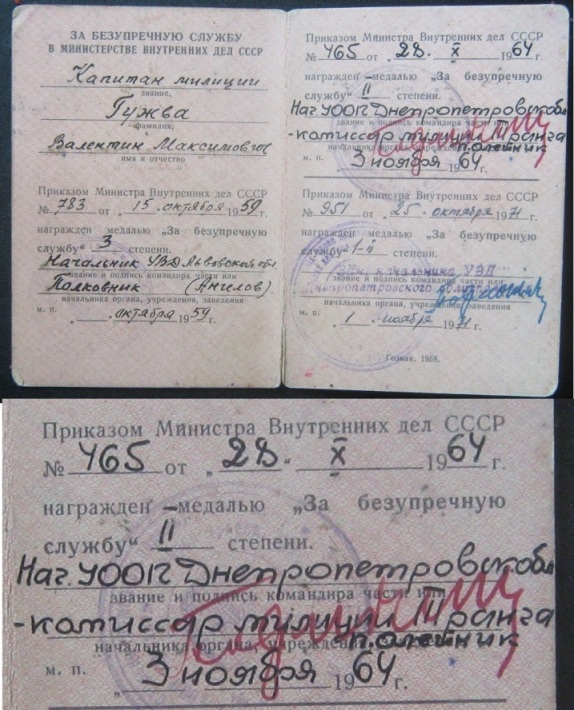 ЗА БЕЗУПРЕЧНУЮ СЛУЖБУ
В МИНИСТЕРСТВЕ ВНУТРЕННИХ ДЕЛ СССР
Капитан милиции
звание,
Гужва
фамилия,
Валентин Максимович
имя и отчество
Приказом Министра Внутренних Дел СССР
№ 783 от „15 октября 1959 г.
награжден медалью „За безупречную
службу" 3 степени.
Начальник УВД Львовской обл
звание и подпись командира части или
Полковник (Ангелов)
начальника органа, учреждения, заведения
м. п. „ октября 1959 г.
Приказом Министра Внутренних дел СССР
№ 465 от „28. X 1964 г.
награжден – медалью „За безупречную
службу" II степени.
Нач. УООП Днепропетровск обл
звание и подпись командира части или
-комиссар милиции III ранга
начальника органа, учреждения, заведения
полейник
м. п. „3 ноября 1964 г.
Приказом Министра Внутренних дел СССР
№ 951 от „25 октября 1971 г.
награжден медалью „За безупречную
службу" 1-й степени.
начальника УВД
звание и подпись командира части или
Днепропетровского
начальника органа, учреждения, заведения
м. п. „1 ноября 1971 г.
Гознак. 1958.
Приказом Министра Внутренних дел СССР
№ 465 от „28. X 1964 г.
награжден – медалью „За безупречную
службу" II степени.
Нач. УООП Днепропетровск обл
звание и подпись командира части или
-комиссар милиции III ранга
начальника органа, учреждения, заведения
полейник
м. п. „3 ноября 1964 г.